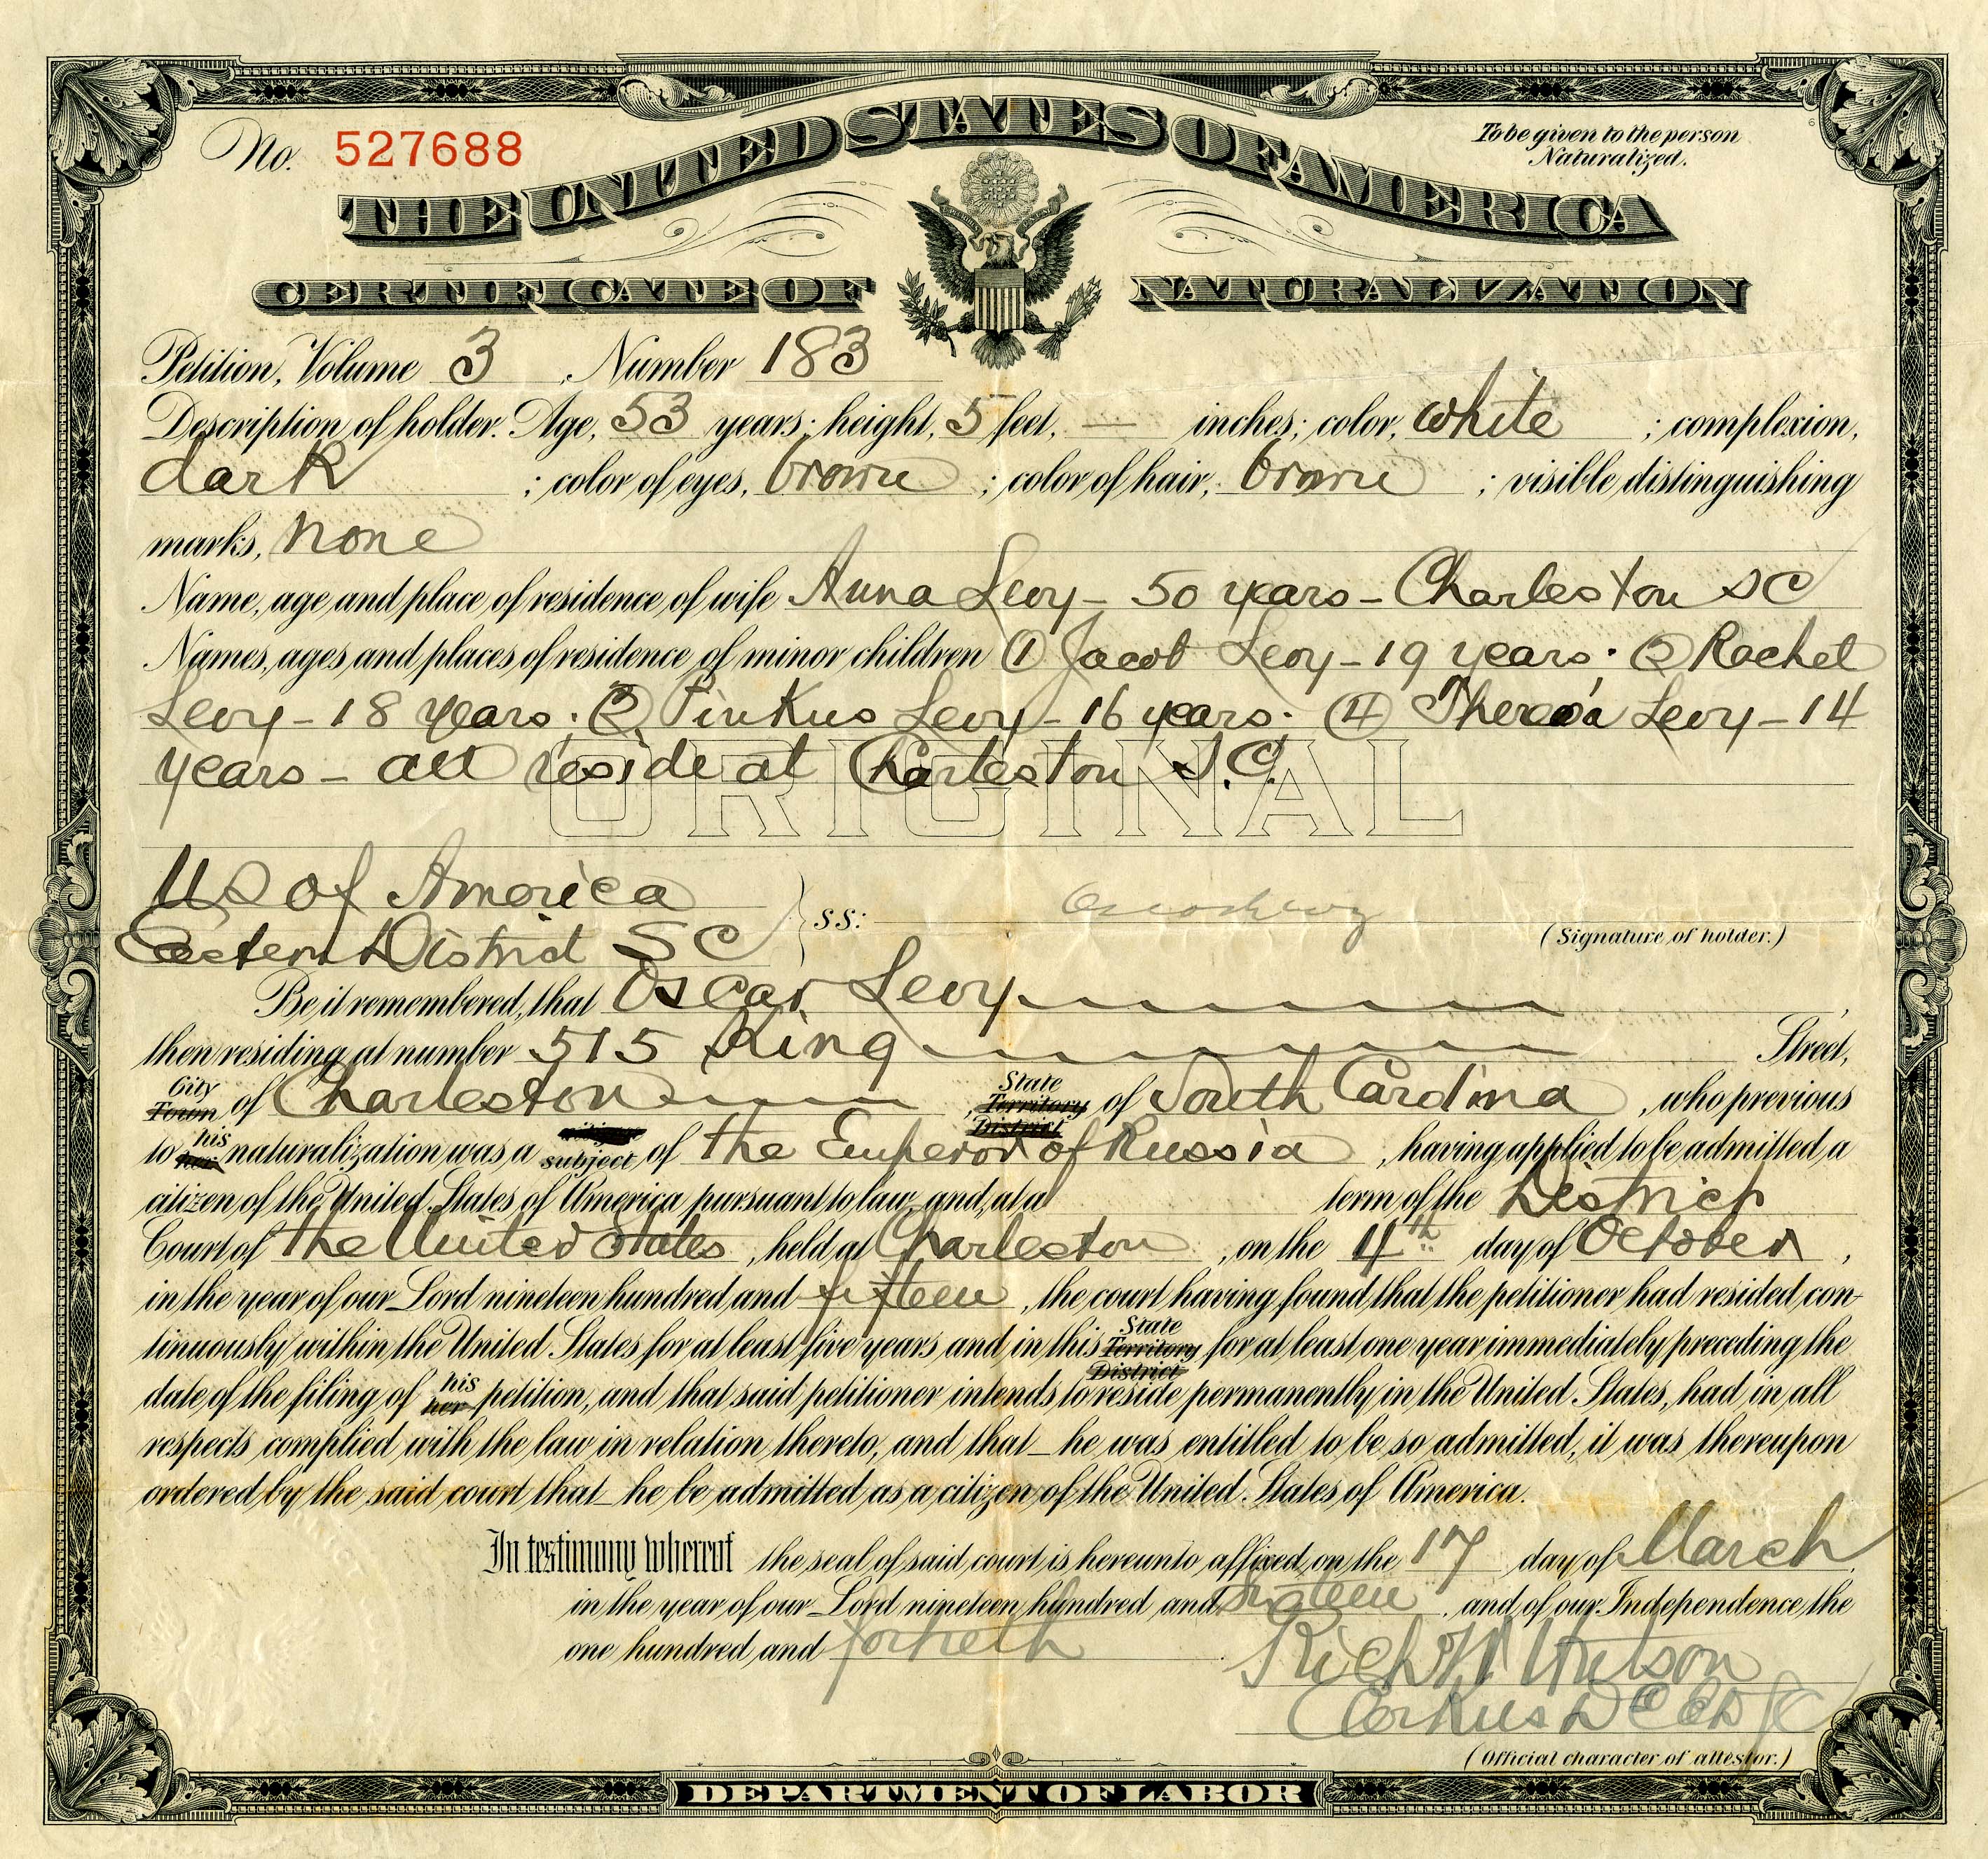 No. 527688
To be given to the person
Naturalized.
THE UNITED STATES OF AMERICA
CERTIFICATE OF NATURALIZATION
Petition, Volume 3, Number 183
Description of holder. Age, 53 years; height, 5 feet, — inches; color, white; complexion,
dark; color of eyes, brown; color of hair, brown; visible distinguishing
marks, none
Name, age and place of residence of wife Anna Levy - 50 years - Charleston SC
Names, ages and places of residence of minor children ① Jacob Levy - 19 years; ② Rachel
Levy - 18 years; ③ Pinkus Levy - 16 years; ④ Theresa Levy - 14
years - all reside at Charleston S.C.
ORIGINAL
US of America
Eastern District SC } ss:
(Signature of holder.)
Be it remembered, that Oscar Levy,
then residing at number 515 King Street,
City Town of Charleston, State Territory District of South Carolina, who previous
to his her naturalization was a subject of the Emperor of Russia, having applied to be admitted a
citizen of the United States of America pursuant to law, and, at a term of the District
Court of the United States, held at Charleston, on the 4th day of October,
in the year of our Lord nineteen hundred and fifteen, the court having found that the petitioner had resided con-
tinuously within the United States for at least five years and in this State Territory District for at least one year immediately preceding the
date of the filing of his her petition, and that said petitioner intends to reside permanently in the United States, had in all
respects complied with the law in relation thereto, and that he was entitled to be so admitted, it was thereupon
ordered by the said court that he be admitted as a citizen of the United States of America.
In testimony whereof the seal of said court is hereunto affixed on the 17 day of March
in the year of our Lord nineteen hundred and sixteen, and of our Independence the
one hundred and fortieth.
Rich W Hutson
Clerk US D C E D S C
(Official character of attestor.)
DEPARTMENT OF LABOR